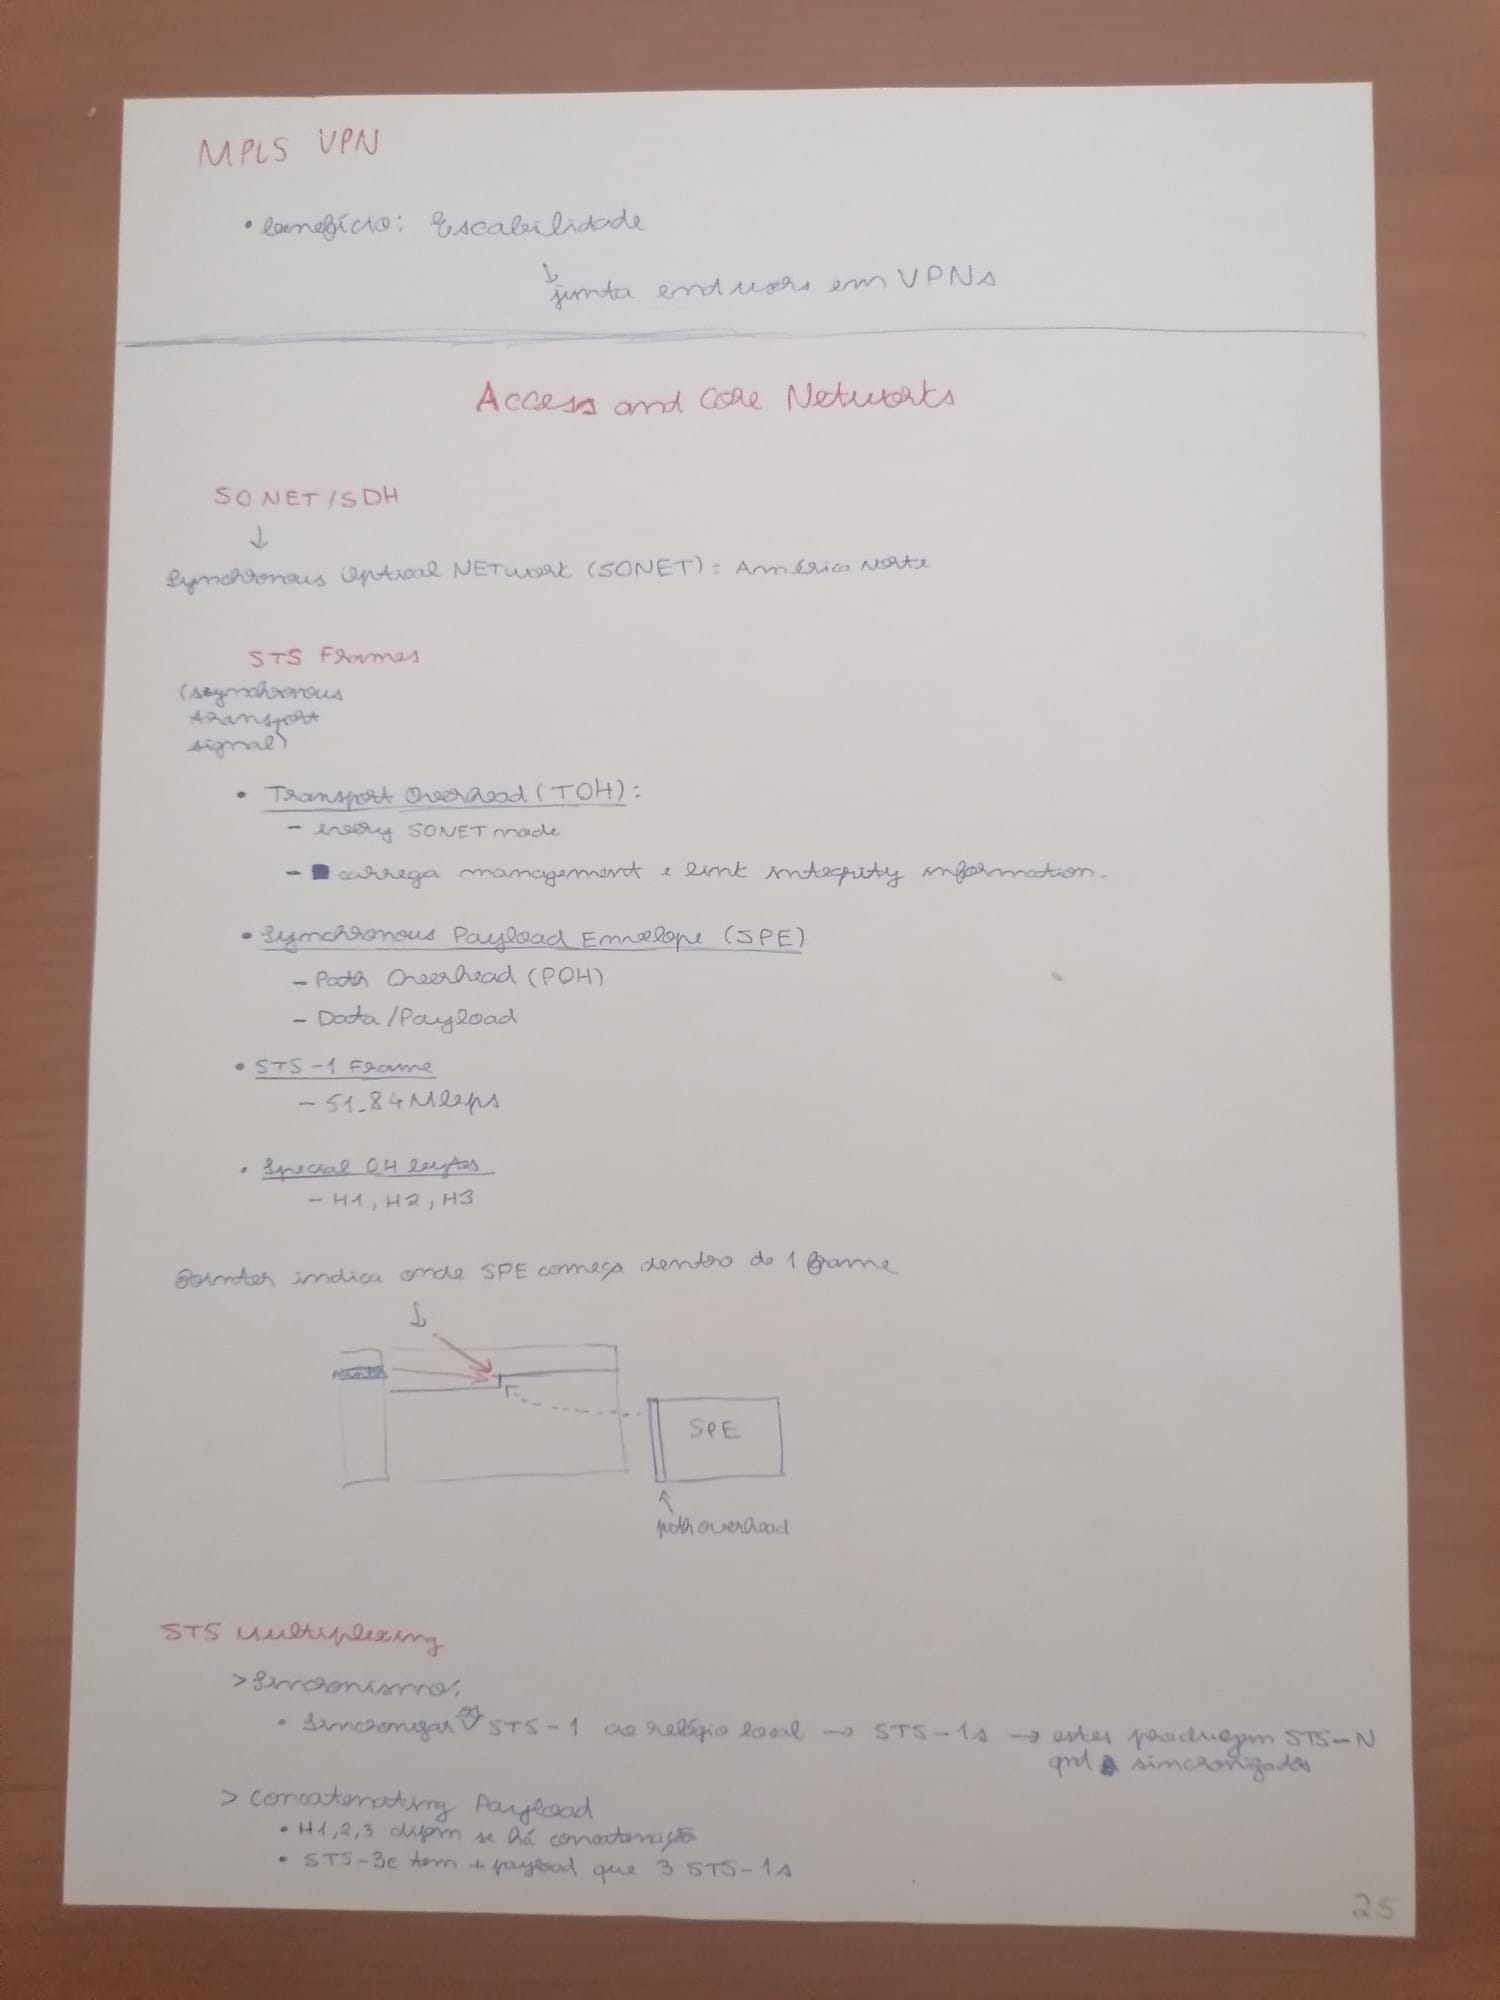 MPLS VPN
• benefício: Escabilidade
↓
junta end users em VPNs
Access and Core Networks
SONET/SDH
↓
Synchronous Optical NETwork (SONET): América Norte
STS Frames
(synchronous
transport
signal)
• Transport Overhead (TOH):
- every SONET node
- carrega management e link integrity information.
• Synchronous Payload Envelope (SPE)
- Path Overhead (POH)
- Data/Payload
• STS-1 Frame
- 51.84 Mbps
• Special OH bytes
- H1, H2, H3
Pointer indica onde SPE começa dentro do 1 frame
↓
SPE
↑
path overhead
STS Multiplexing
> Sincronismo:
• Sincronizar STS-1 ao relógio local → STS-1s → estes produzem STS-N
sincronizados
> Concatenating Payload
• H1,2,3 dizem se há concatenação
• STS-3c tem + payload que 3 STS-1s
25